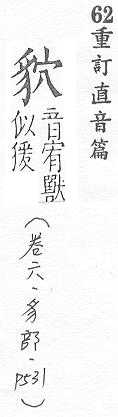 62重訂直音篇
貁
音宥獸
似猨
（卷六·豸部·P531）